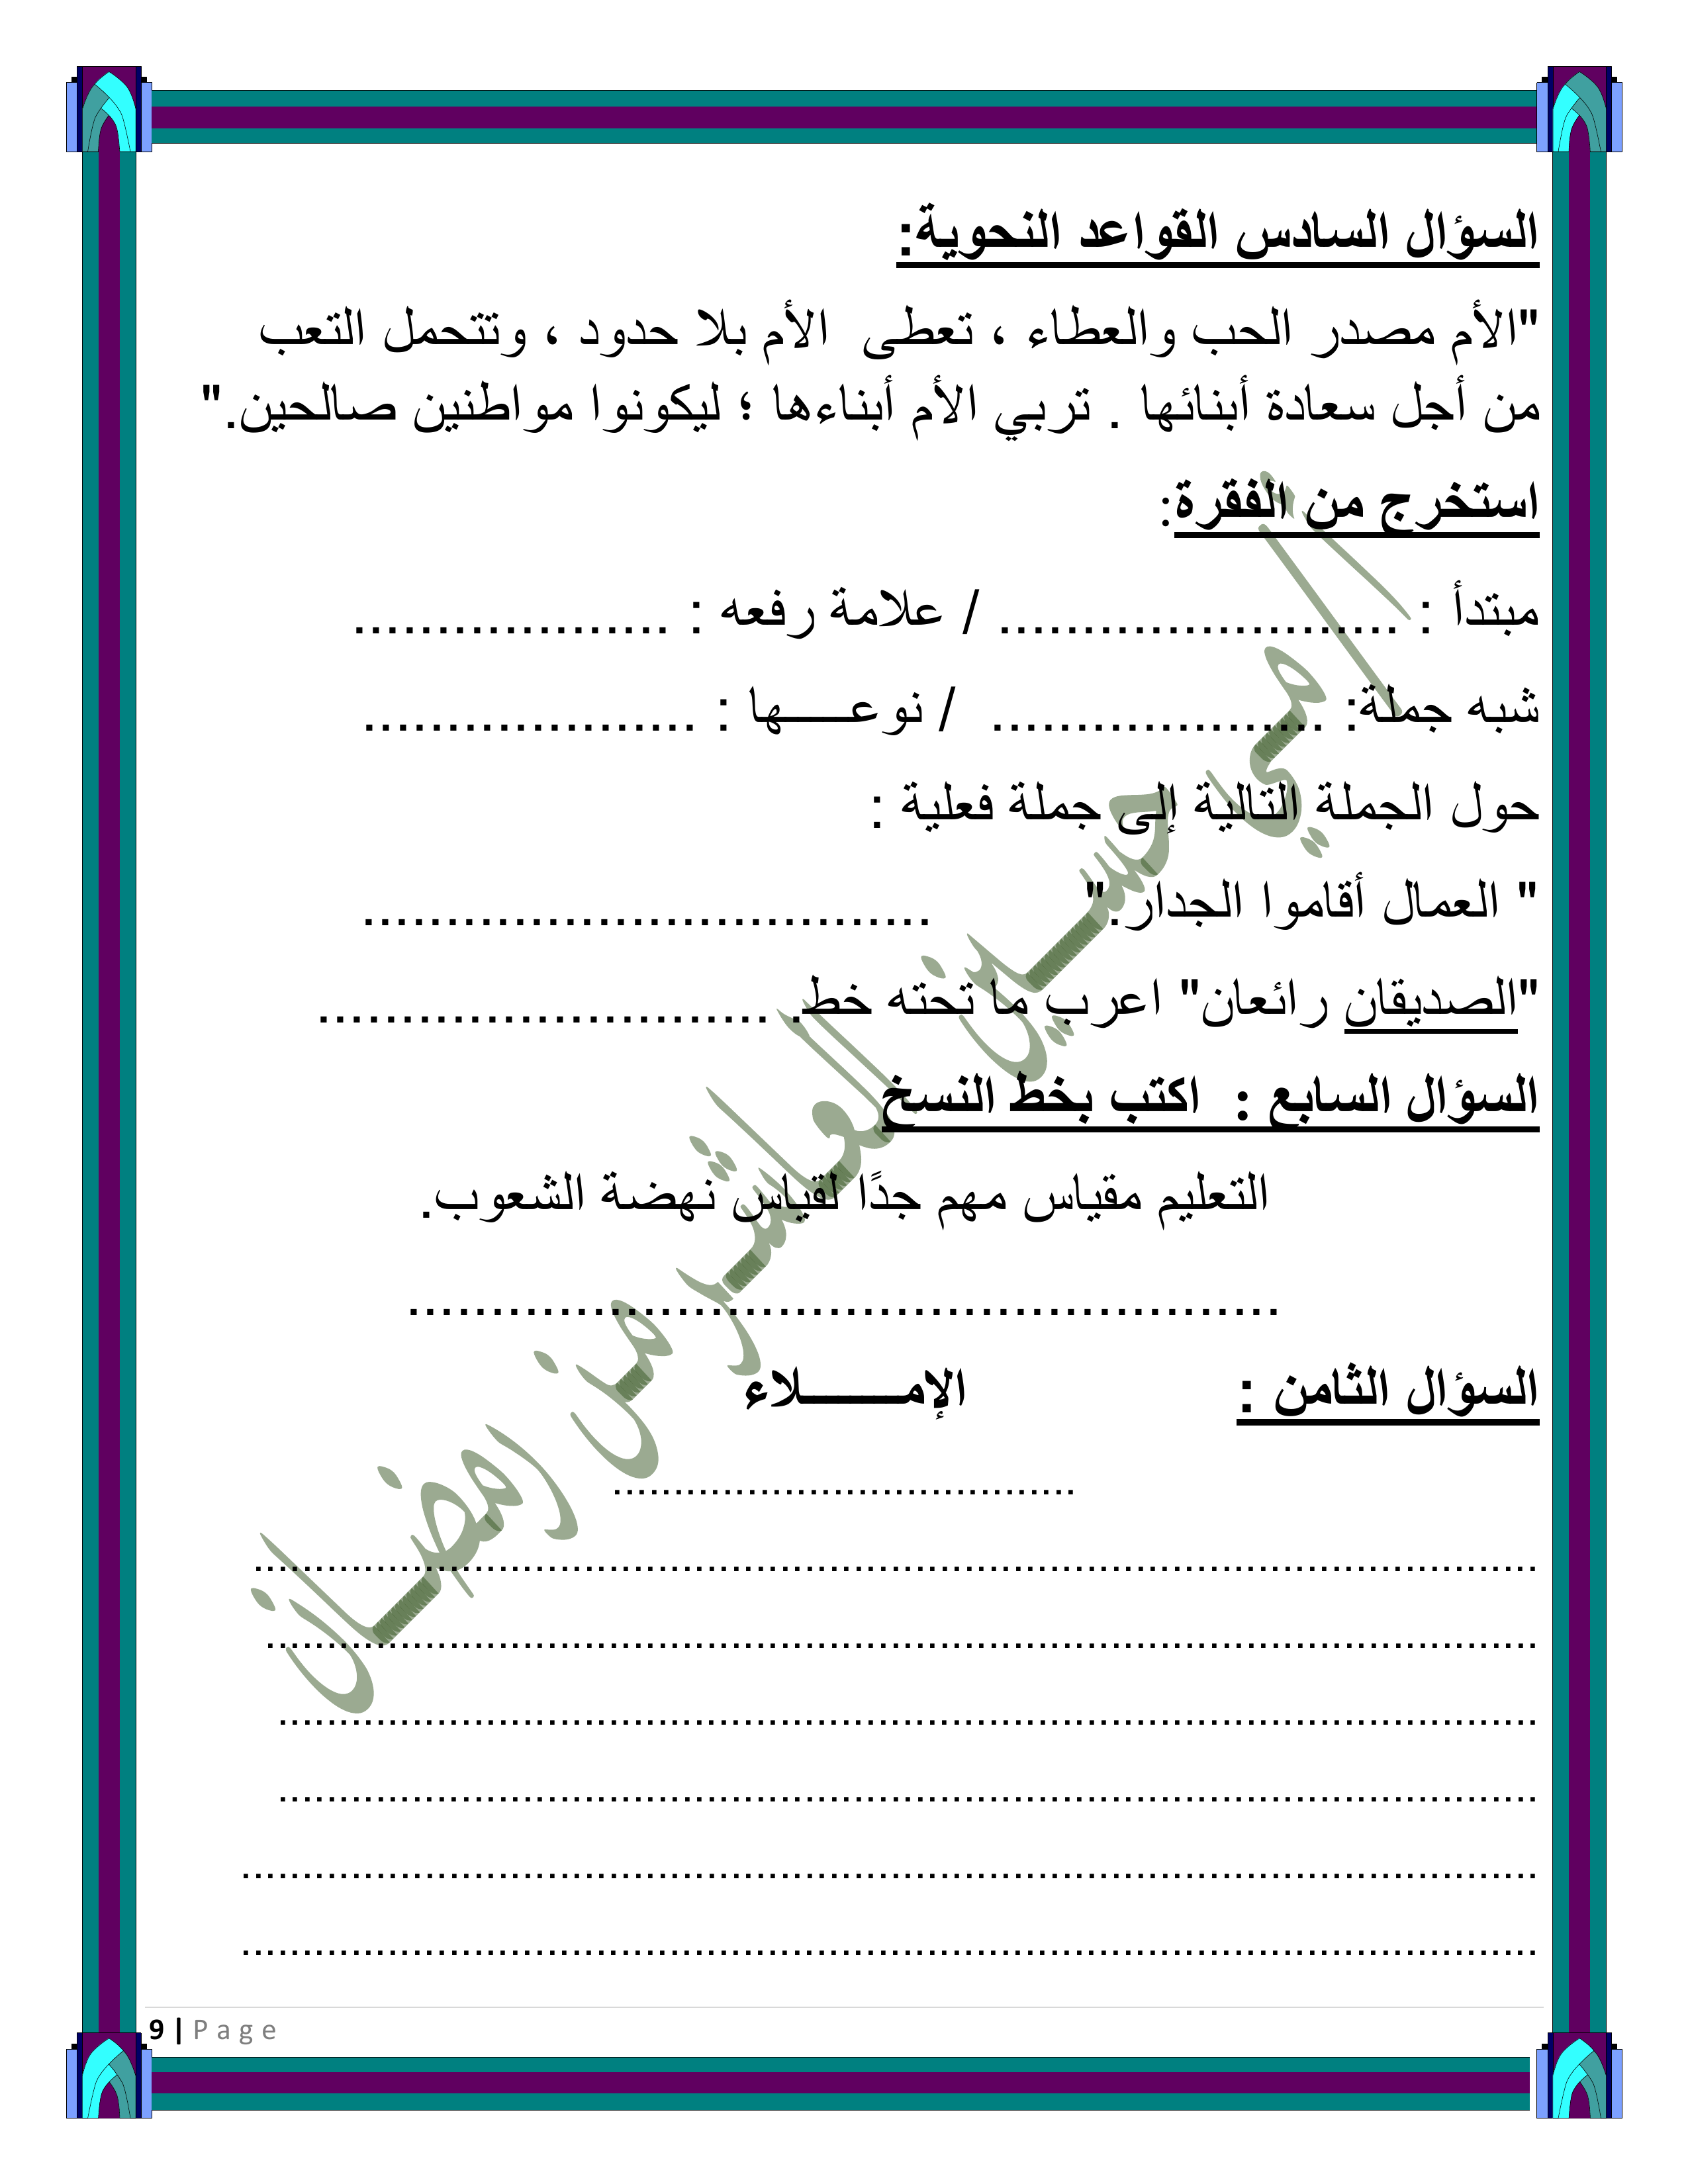 السؤال السادس القواعد النحوية:
"الأم مصدر الحب والعطاء ، تعطى  الأم بلا حدود ، وتتحمل التعب
من أجل سعادة أبنائها . تربي الأم أبناءها ؛ ليكونوا مواطنين صالحين."
استخرج من الفقرة:
مبتدأ : ........................ / علامة رفعه : ...................
شبه جملة: ....................  / نوعـــــها : ....................
حول الجملة التالية إلى جملة فعلية :
" العمال أقاموا الجدار."  ..................................
"الصديقان رائعان" اعرب ما تحته خط. ...........................
السؤال السابع :  اكتب بخط النسخ
التعليم مقياس مهم جدًا لقياس نهضة الشعوب.
....................................................
السؤال الثامن :  الإمـــــــلاء
......................................
.........................................................................................................
........................................................................................................
.......................................................................................................
.......................................................................................................
..........................................................................................................
..........................................................................................................
أ/ مي حسين العاشر من رمضان
9 | Page